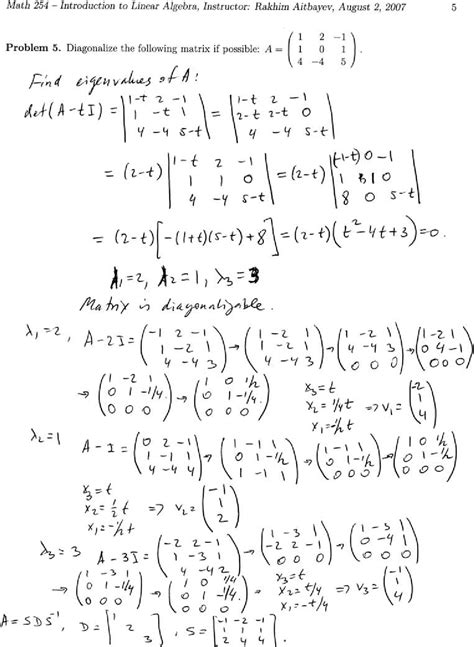 Math 254 – Introduction to Linear Algebra, Instructor: Rakhim Aitbayev, August 2, 2007 5
Problem 5. Diagonalize the following matrix if possible: A = ( 1 2 −1 ; 1 0 1 ; 4 −4 5 ).
Find eigenvalues of A:
det(A-tI) = | 1-t 2 -1 ; 1 -t 1 ; 4 -4 5-t | = | 1-t 2 -1 ; 2-t 2-t 0 ; 4 -4 5-t |
= (2-t) | 1-t 2 -1 ; 1 1 0 ; 4 -4 5-t | = (2-t) | (-1-t) 0 -1 ; 1 1 0 ; 8 0 5-t |
= (2-t) [ -(1+t)(5-t) + 8 ] = (2-t)(t² - 4t + 3) = 0.
λ₁=2, λ₂=1, λ₃=3
Matrix is diagonalizable.
λ₁=2, A-2I = ( -1 2 -1 ; 1 -2 1 ; 4 -4 3 ) → ( 1 -2 1 ; 1 -2 1 ; 4 -4 3 ) → ( 1 -2 1 ; 4 -4 3 ; 0 0 0 ) → ( 1 -2 1 ; 0 4 -1 ; 0 0 0 )
→ ( 1 -2 1 ; 0 1 -1/4 ; 0 0 0 ) → ( 1 0 1/2 ; 0 1 -1/4 ; 0 0 0 ) x₃=t x₂=1/4t x₁=-1/2t => v₁ = ( -2 ; 1 ; 4 )
λ₂=1 A-I = ( 0 2 -1 ; 1 -1 1 ; 4 -4 4 ) → ( 1 -1 1 ; 0 1 -1/2 ; 1 -1 1 ) → ( 1 -1 1 ; 0 1 -1/2 ; 0 0 0 ) → ( 1 0 1/2 ; 0 1 -1/2 ; 0 0 0 )
x₃=t
x₂=1/2t => v₂ = ( -1 ; 1 ; 2 )
x₁=-1/2t
λ₃=3 A-3I = ( -2 2 -1 ; 1 -3 1 ; 4 -4 2 ) → ( 1 -3 1 ; -2 2 -1 ; 0 0 0 ) → ( 1 -3 1 ; 0 -4 1 ; 0 0 0 )
→ ( 1 -3 1 ; 0 1 -1/4 ; 0 0 0 ) → ( 1 0 1/4 ; 0 1 -1/4 ; 0 0 0 ) x₃=t x₂=t/4 x₁=-t/4 => v₃ = ( -1 ; 1 ; 4 )
A=SDS⁻¹, D = [ 1 2 3 ], S = [ -1 -2 -1 ; 1 1 1 ; 2 4 4 ].